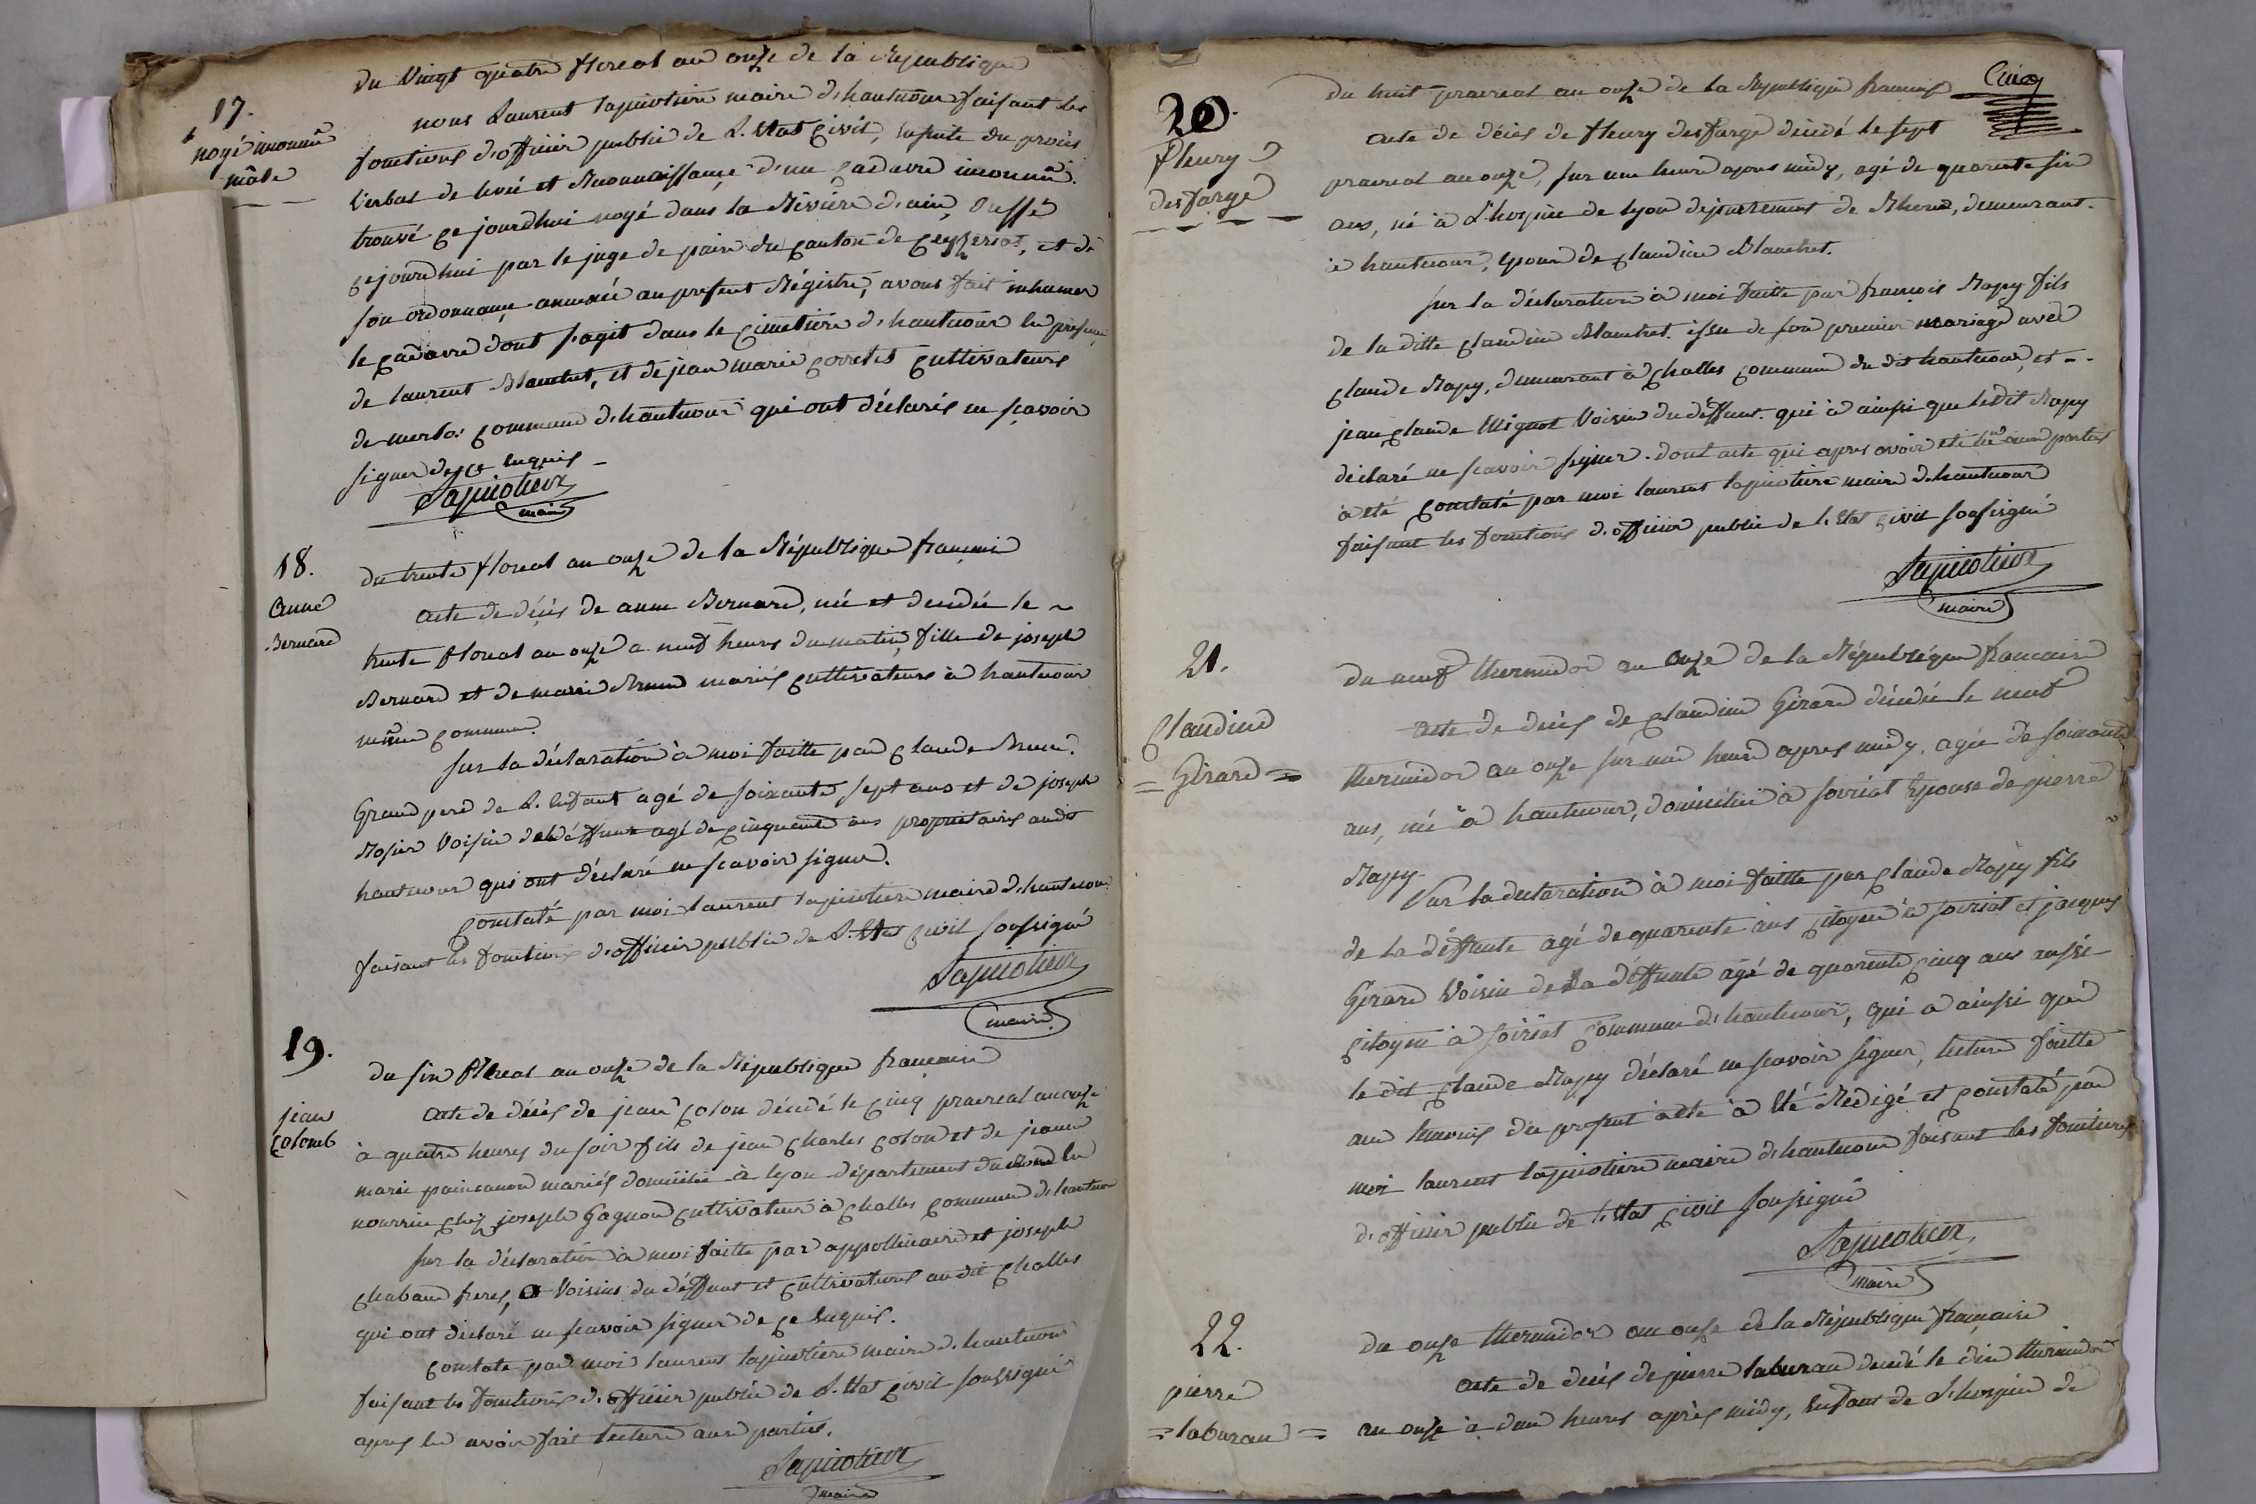 du Vingt quatre floreal an onze de la Republique
17.
noyé inconnû
mâle
nous Laurent lapicotiere maire d'hautecour faisant les
fonctions d'officier public de L'Etat Civil, ensuite du procés
Verbal de levée et Reconnoissance d'un Cadavre inconnû.
trouvé ce jourdhui noyé dans la Rivière d'ain, Dressé
cejourdhui par le juge de paix du canton de Ceyzeriat, et de
son ordonnance annexée au present Régistre, avons fait inhumer
le Cadavre dont s'agit dans le Cimetiere d'hautecour en presence
de laurent Blanchet, et de jean marie cultivateurs
de merlo: commune d'hautecour qui ont déclarés ne scavoir
signer de ce enquis
Lapicotiere
maire
18.
anne
Bernard
du trente floreal an onze de la République francaise
acte de décés de anne Bernard, née et decedée le
trente floreal an onze a neuf heures du matin, fille de joseph
Bernard et de marie Brun mariés cultivateurs à hautecour
même commune.
sur la déclaration à moi faitte par Claude Brun.
Grand pere de L'enfant agé de soixante sept ans et de joseph
Rosier Voisin de la déffunte agé de cinquante ans propriétaires audit
hautecour qui ont déclaré ne scavoir signer.
Constaté par moi laurent lapicotiere maire d'hautecour
faisant les fonctions d'officier public de L'Etat Civil soussigné
Lapicotiere
maire
19.
jean
Colomb
du six floreal an onze de la République francaise
acte de décés de jean Colon décédé le cinq praireal an onze
à quatre heures du soir fils de jean Charles Colon et de jeanne
marie mariés domicilié à lyon département du Rhone en
nourrice chez joseph Gagnon cultivateur à Challes commune d'hautecour
sur la déclaration à moi faitte par appollinaire et joseph
Chaband freres, Voisins du déffunt et cultivateurs au dit Challes
qui ont déclaré ne scavoir signer de ce enquis.
Constate par moi laurent lapicotiere maire d'hautecour
faisant les fonctions d'officier public de L'Etat Civil soussigné
apres en avoir fait lecture aux parties.
Lapicotiere
maire
Cinq
20.
fleury
desfarge
du huit praireal an onze de la Republique francaise
acte de décés de fleury desfarge décédé le sept
praireal an onze, sur une heure apres midy, agé de quarante six
ans, né à L'hospice de lyon département de Rhone, demeurant
à hautecour, epoux de claudine Blanchet.
sur la déclaration à moi faitte par françois Rapy fils
de la ditte claudine Blanchet. issu de son premier mariage avec
Claude Rapy, demeurant à Challes commune du dit hautecour, et
jean Claude Mignot Voisin du déffunt. qui à ainsi que ledit Rapy
déclaré ne scavoir signer. dont acte qui apres avoir eté lû aux parties
à eté Constaté par moi laurent lapicotiere maire d'hautecour
faisant les fonctions d'officier public de L'Etat civil soussigné
Lapicotiere
maire
21.
Claudine
= Girard =
du neuf thermidor an onze de la République francaise
acte de décés de Claudine Girard décédée le neuf
thermidor an onze sur une heure apres midy, agée de soixante
ans, née à hautecour, domiciliée à soiriat Epouse de pierre
Rapy
Sur la declaration à moi faitte par Claude Rapy fils
de la déffunte agé de quarente ans citoyen à soiriat et jacques
Girard Voisin de la déffunte agé de quarente cinq ans aussi
citoyen à soiriat Commune d'hautecour, qui a ainsi que
le dit Claude Rapy déclaré ne scavoir signer, lecture faitte
aux temoins du present acte à eté Rédigé et constaté par
moi laurent lapicotiere maire d'hautecour faisant les fonctions
d'officier public de l'Etat civil soussigné
Lapicotiere
maire
22.
pierre
= laburau =
du onze thermidor an onze de la République française
acte de decés de pierre laburau decedé le dix thermidor
an onze à deux heures après midy, Enfans de L'hospice de